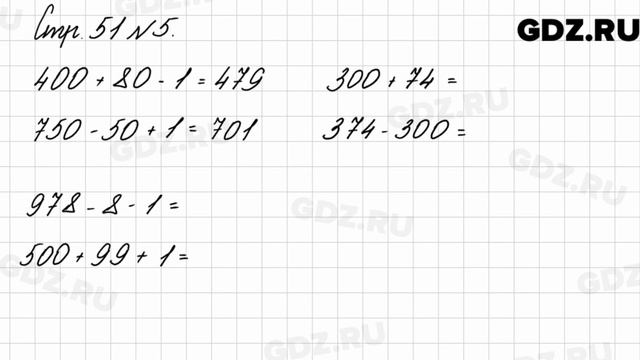 Стр. 51 №5.
GDZ.RU
400 + 80 - 1 = 479
300 + 74 =
750 - 50 + 1 = 701
374 - 300 =
978 - 8 - 1 =
500 + 99 + 1 =
GDZ.RU
GDZ.RU
GDZ.RU
GDZ.RU
GDZ.RU
GDZ.RU
GDZ.RU